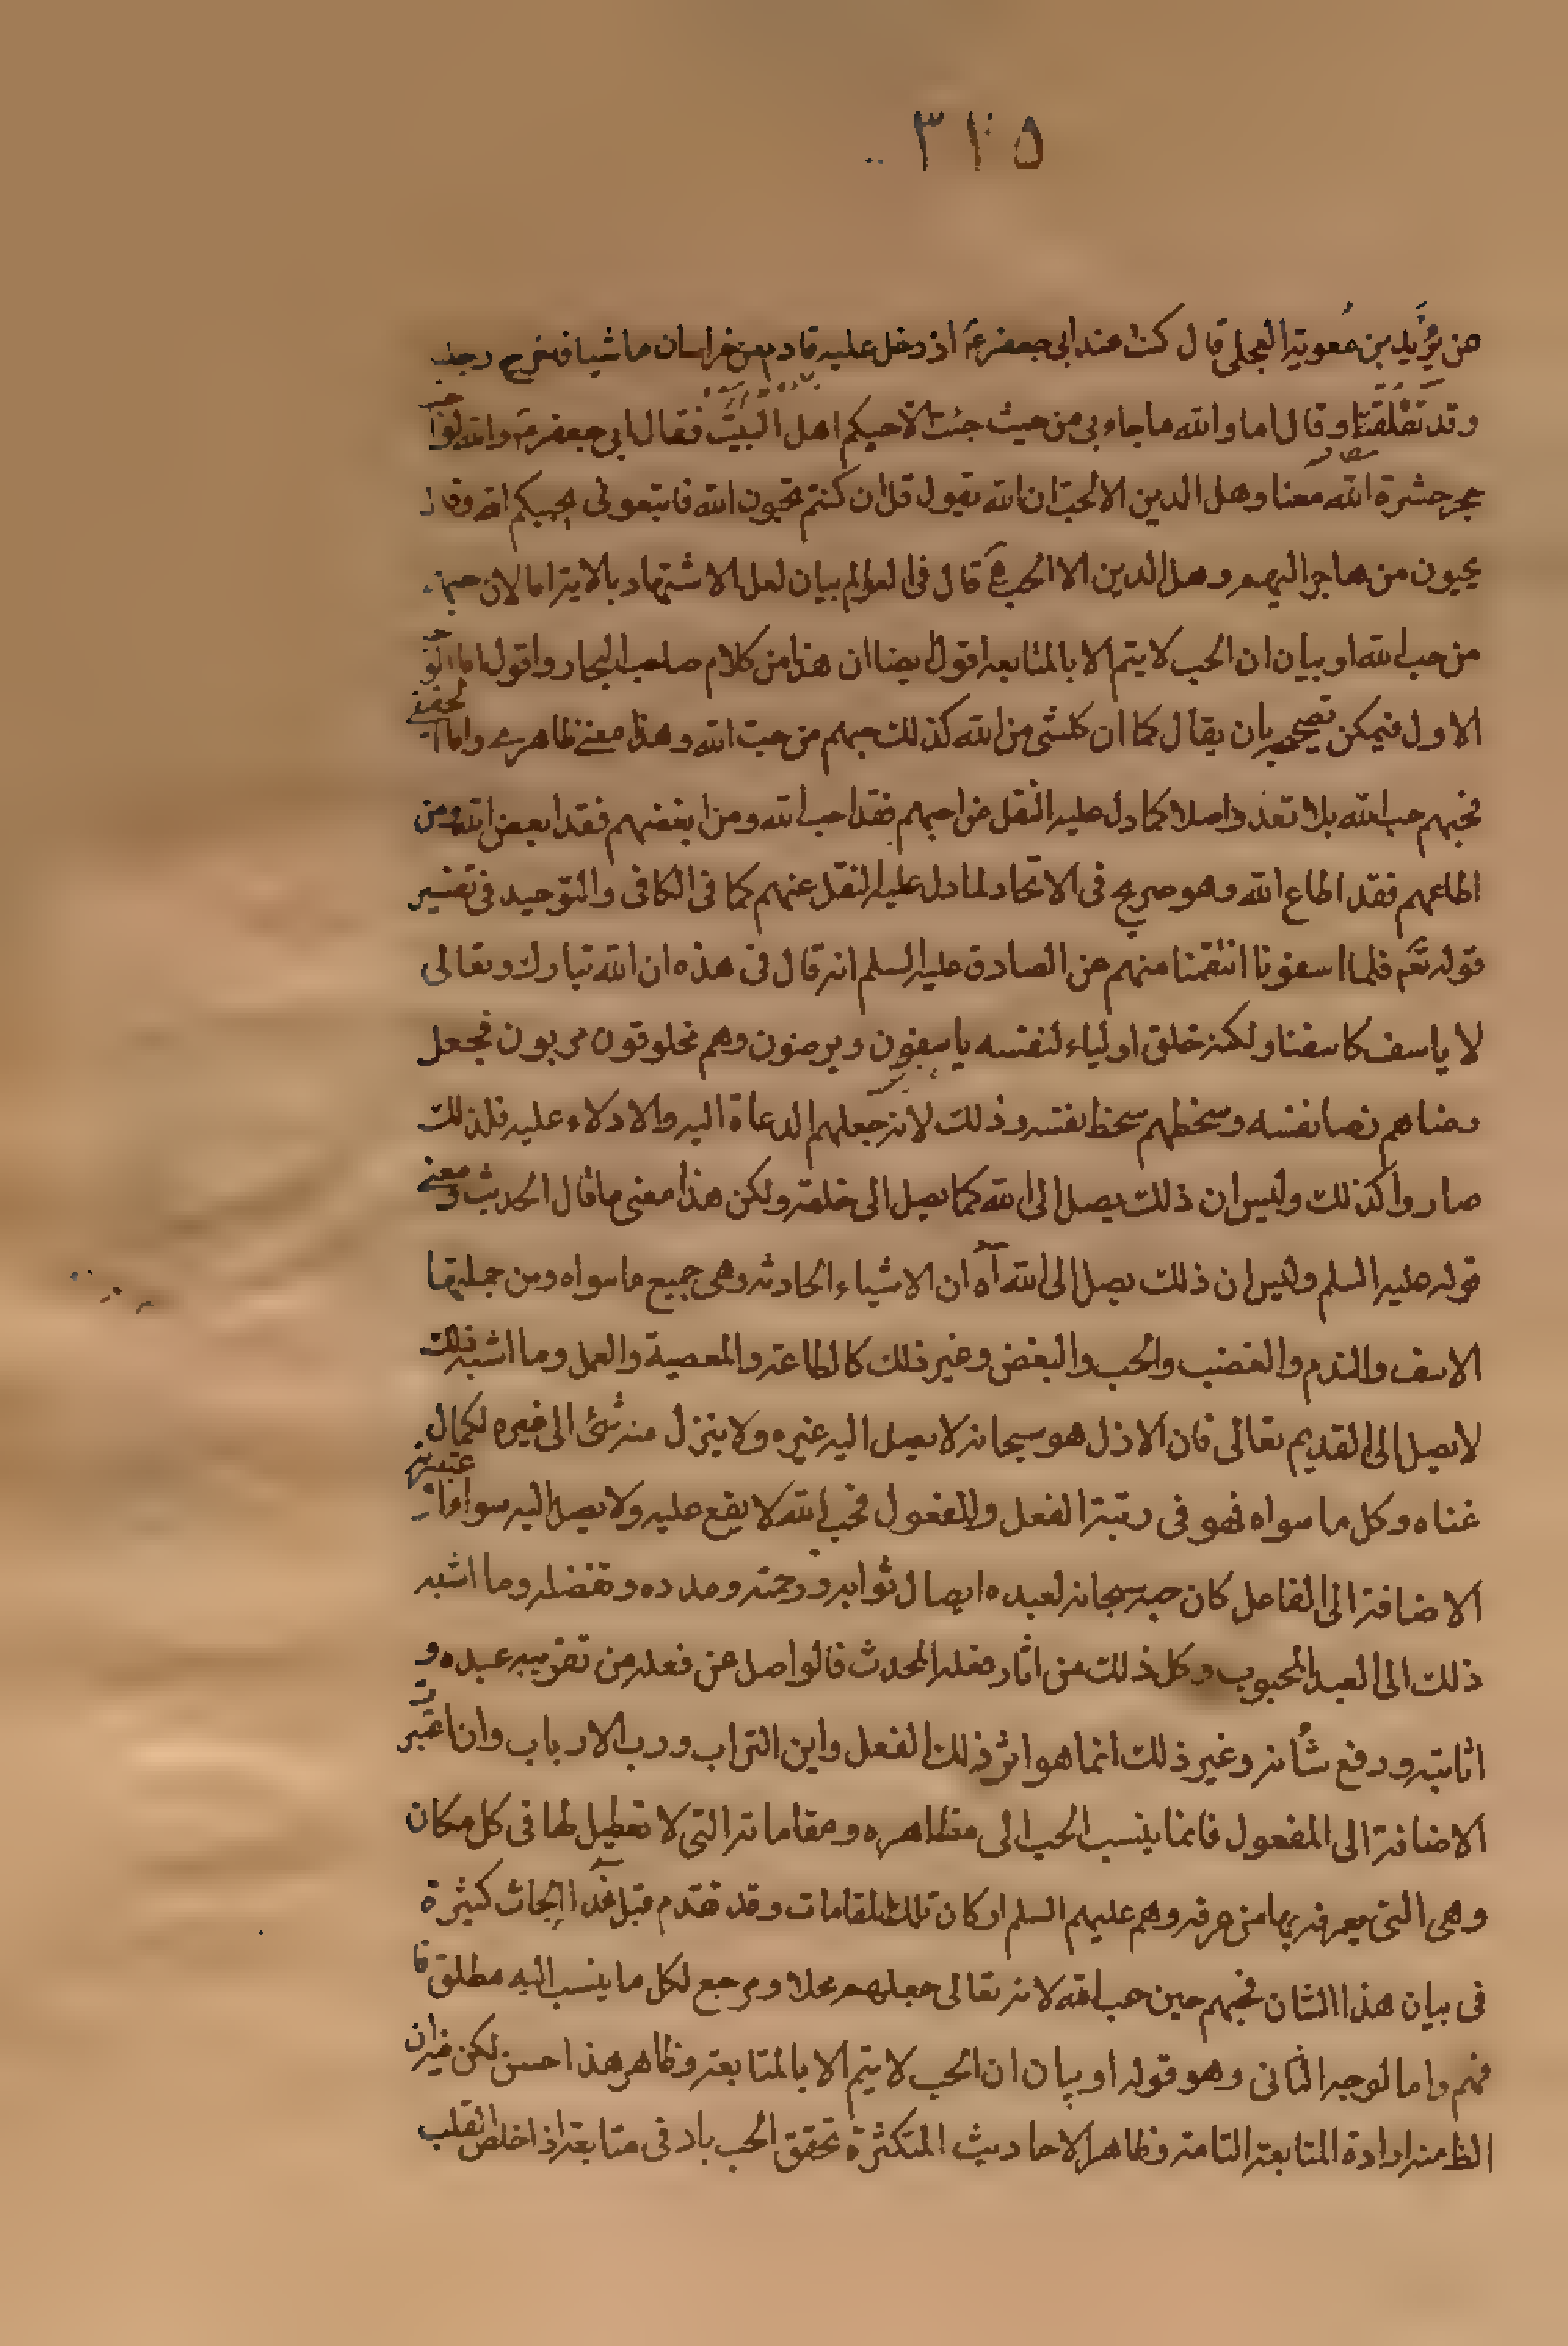 ٣١٥
عن بريد بن معوية العجلى قال كنت عند ابى جعفر ع اذ دخل عليه قادم من خراسان ماشيا فاخرج رجليه
وقد تغلقتا وقال اما والله ماجاء بى من حيث جئت الا حبكم اهل البيت فقال ابى جعفر ع والله لو ا
حجر حشرة الله معنا وهل الدين الا الحب ان الله تقول قل ان كنتم تحبون الله فاتبعونى يحببكم الله وقال
يحبون من هاجر اليهم وهل الدين الا الحب قال فى العوالم بيان لعل الاستشهاد بالاية اما لان حبهم
من حب الله او بيان ان الحب لا يتم الا بالمتابعة اقول ايضا ان هذا من كلام صاحب البحار واقول اما
الاول فيمكن تصحيحه بان يقال كما ان كلشى من الله كذلك حبهم من حب الله وهذا معنى ظاهرى واما
فحبهم حب الله بلا تعدد اصلا كما دل عليه النقل من احبهم فقد احب الله ومن ابغضهم فقد ابغض الله ومن
اطاعهم فقد اطاع الله وهو صريح فى الاتحاد لما دل عليه النقل عنهم كما فى الكافى والتوحيد فى تفسير
قوله تعم فلما اسفونا انتقمنا منهم عن الصادق عليه السلم انه قال فى هذه ان الله تبارك وتعالى
لا ياسف كاسفنا ولكنه خلق اولياء لنفسه ياسفون ويرضون وهم مخلوقون مربوبون فجعل
رضاهم رضا نفسه وسخطهم سخط نفسه وذلك لانه جعلهم الدعاة اليه والادلاء عليه فلذلك
صاروا كذلك وليس ان ذلك يصل الى الله كما يصل الى خلقه ولكن هذا معنى ما قال الحديث ومعنى
قوله عليه السلم وليس ان ذلك يصل الى الله آه ان الاشياء الحادثه وهى جميع ما سواه ومن جملتها
الاسف والندم والغضب والحب والبغض وغير ذلك كالطاعة والمعصية والعمل وما اشبه ذلك
لا تصل الى القديم تعالى فان الازل هو سبحانه لا يصل اليه غيره ولا ينزل منه شئ الى غيره لكمال
غناه وكل ما سواه فهو فى رتبة الفعل والمفعول فحب الله لا يقع عليه ولا يصل اليه سواء
الاضافة الى الفاعل كان حبه سبحانه لعبده ايصال ثوابه ورحمته ومدده وتفضله وما اشبه
ذلك الى العبد المحبوب وكل ذلك من اثار فعله المحدث فالواصل من فعله من تقريبه عبده و
اثابته ورفع شأنه وغير ذلك انما هو اثر ذلك الفعل واين التراب ورب الارباب وان اعتبر
الاضافة الى المفعول فانما ينسب الحب الى مظاهره ومقاماته التى لا تعطيل لها فى كل مكان
وهى التى يعرفه بها من عرفه وهم عليهم السلم اركان تلك المقامات وقد تقدم قبل هذا ابحاث كثيرة
فى بيان هذا الشان فحبهم عين حب الله لانه تعالى جعلهم محلا ومرجع لكل ما ينسب اليه مطلقا
فهم واما الوجه الثانى وهو قوله او بيان ان الحب لا يتم الا بالمتابعة وظاهر هذا حسن لكن غير ان
الظ منه ارادة المتابعة التامة وظاهر الاحاديث المتكثرة تحقق الحب باد فى متابعة اذا اخلص القلب